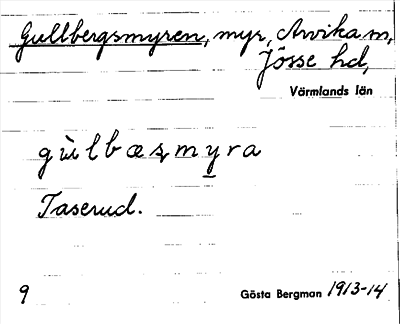 Gullbergsmyren, myr, Arvika sn,
Jösse hd,
Värmlands län
gùlbæʂmyra
Taserud.
9 Gösta Bergman 1913-14